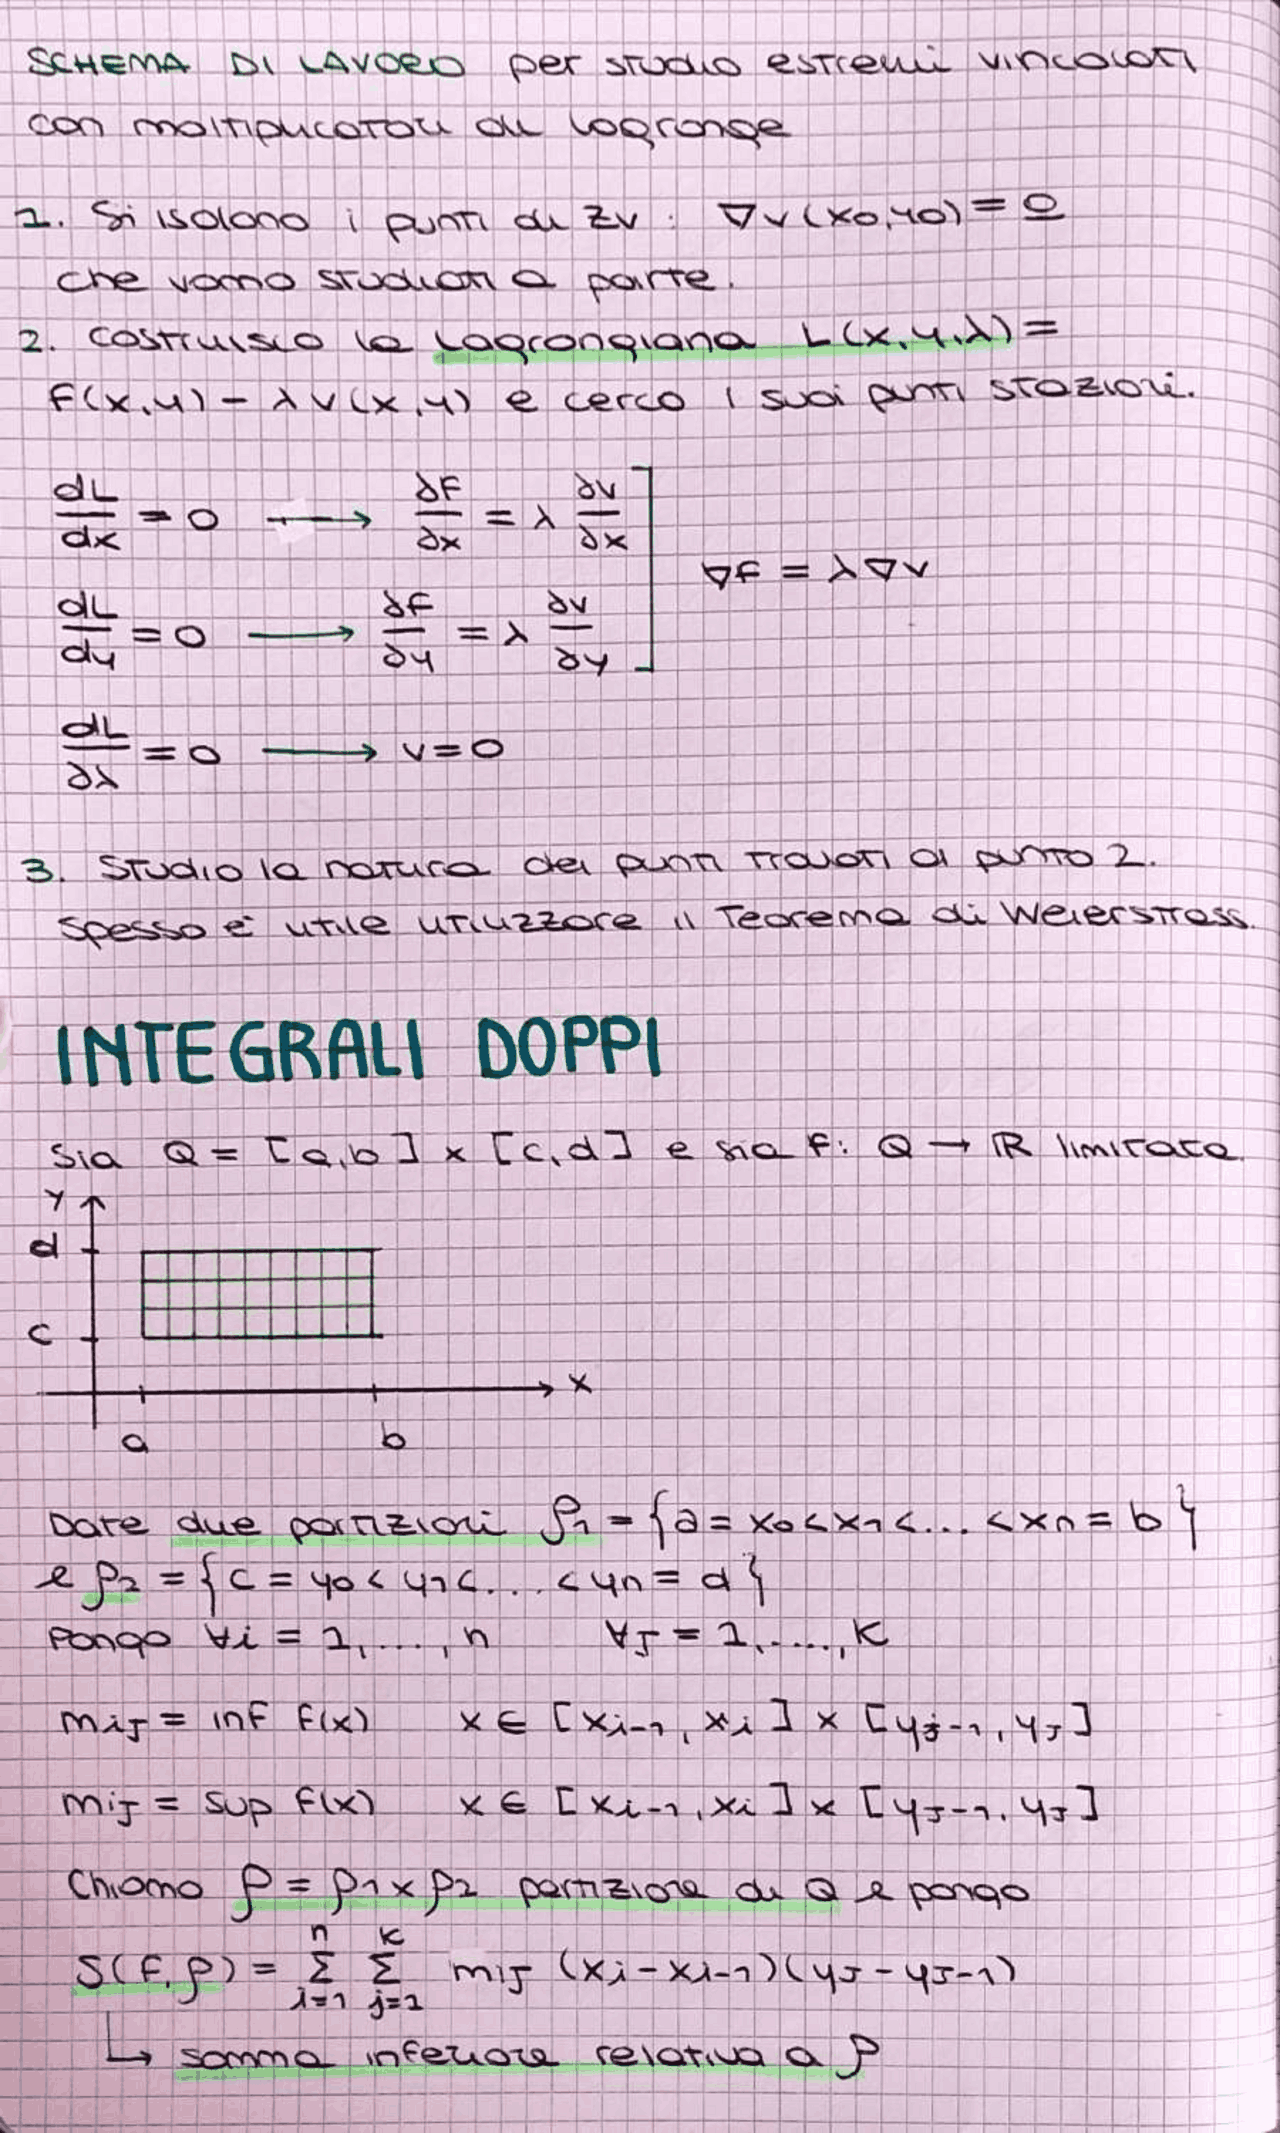 SCHEMA DI LAVORO per studio estremi vincolati
con moltiplicatori di Lagrange
1. Si isolano i punti di Zv : ∇v(x0,y0) = 0
che vanno studiati a parte.
2. Costruisco la Lagrangiana L(x,y,λ) =
F(x,y) - λv(x,y) e cerco i suoi punti stazioni.
dL/dx = 0 → ∂F/∂x = λ ∂v/∂x
∇F = λ∇v
dL/dy = 0 → ∂F/∂y = λ ∂v/∂y
dL/∂λ = 0 → v=0
3. Studio la natura dei punti trovati al punto 2.
Spesso è utile utilizzare il Teorema di Weierstrass.
INTEGRALI DOPPI
Sia Q = [a,b] x [c,d] e sia F: Q → ℝ limitata.
y
d
c
x
a b
Date due partizioni ρ1 = {a = x0<x1<... <xn = b}
e ρ2 = {c = y0< y1<... <yn = d}
Pongo ∀i = 1,...,n ∀J = 1,....,k
miJ = inf F(x) x ∈ [xi-1, xi] x [yj-1, yJ]
miJ = sup F(x) x ∈ [xi-1, xi] x [yJ-1, yJ]
Chiamo ρ = ρ1 x ρ2 partizione di Q e pongo
S(F,ρ) = Σ_{i=1}^{n} Σ_{j=1}^{k} miJ (xi - xi-1)(yJ - yJ-1)
↳ somma inferiore relativa a ρ